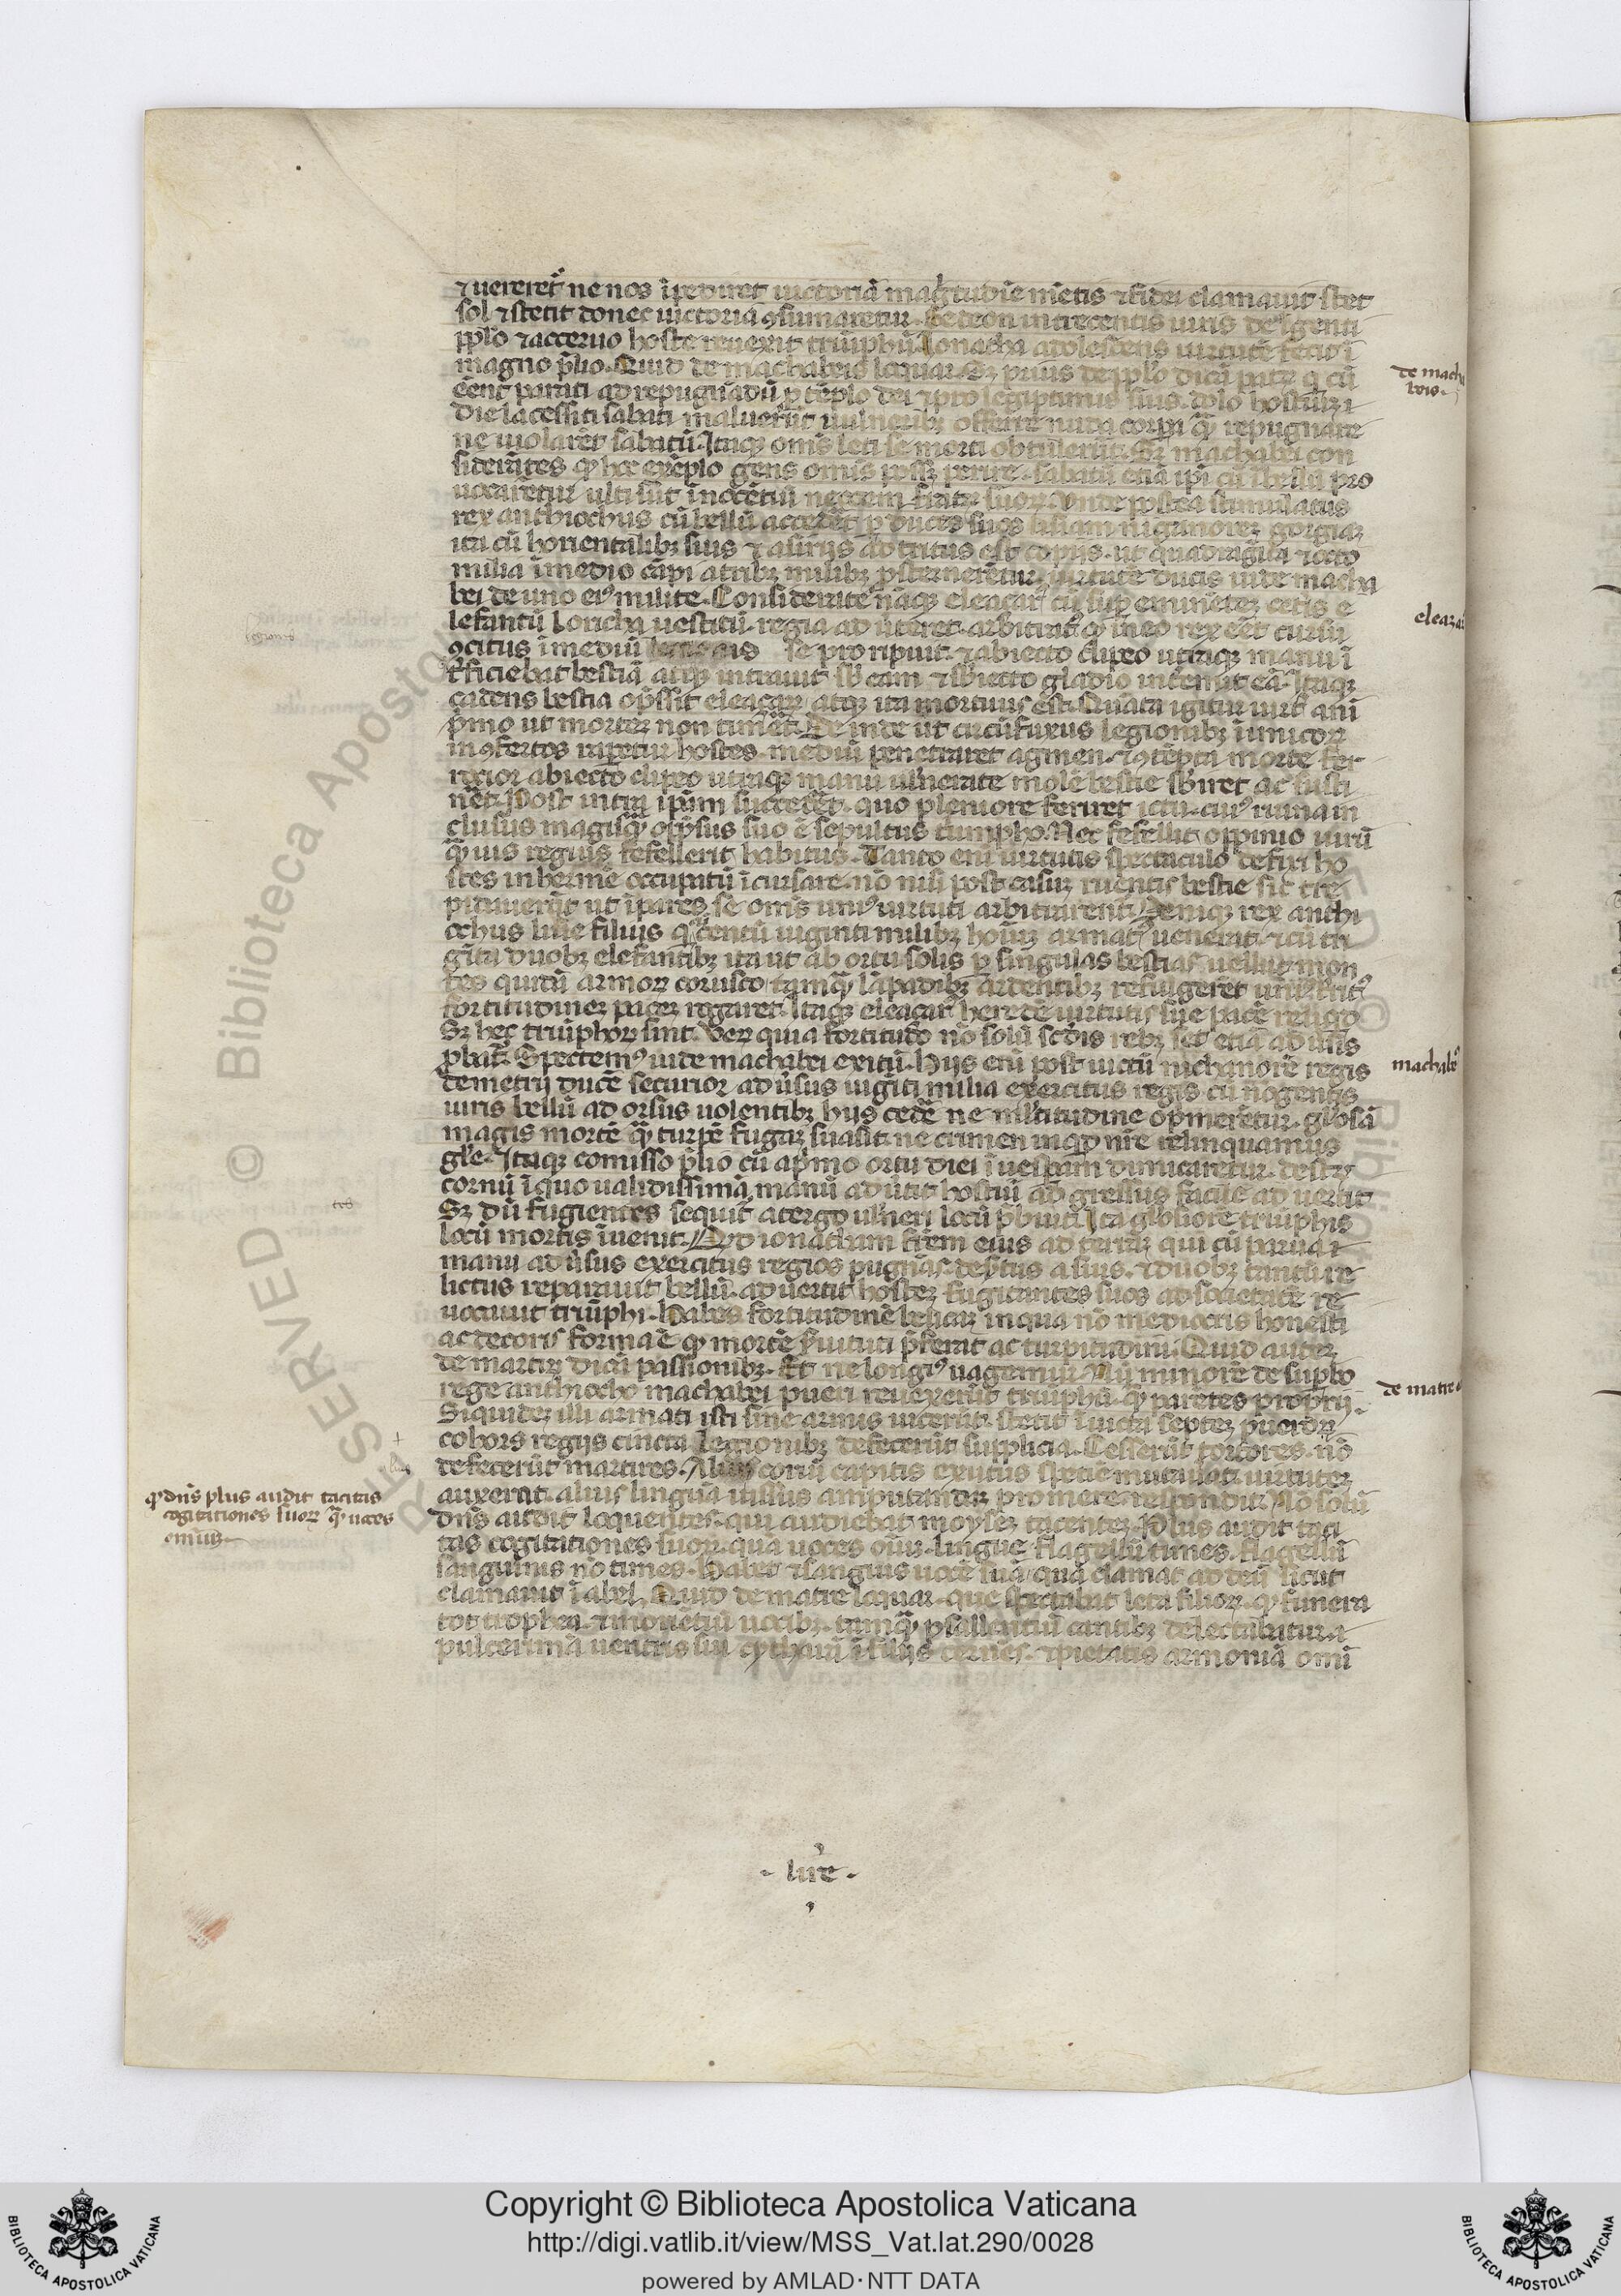 ⁊ uereret᷑ ne nox īpediret uictoriā mag̅tudīe mētis ⁊ fidei clamauit stet
sol ⁊ stetit donec uictoria ꝯsumaretur. Gedeon in trecentis uiris de īgenti
pplo ⁊ acceruo hoste reuexit triūphū. Ionatha adolescens uirtutē fecit ī
magno p̄lio. Quid de machabeis loquar. Sꝫ prius de pplo dicā patrꝫ q̄ cū
eēnt parati ad repugnādū ꝓ tēplo dei ⁊ pro legiptimis suis. dolo hostiū ī
die lacessiti sabati maluerūt uulneribꝫ offerre nuda corpora q̄ repugnare
ne uiolarēt sabatū. Itaqꝫ om̄s leti se morti obtullerūt. Sꝫ machabei con
siderātes ꝙ hoc exēplo gens omīs possꝫ perire. sabatū etiā ip̄i cū ī bellū pro
uocarētur ulti sūt īnocētiū necem fratrꝫ suoꝝ. Unde postea stimulatus
rex anthiochus cū bellū accēderet ꝑ duces suos lisiam nicanoreꝫ gorgiaꝫ
ita cū horientalibꝫ suis ⁊ asirijs ad tritus est copijs. ut quadragīta ⁊ octo
milia ī medio cāpi a tribꝫ milibꝫ ꝓsternerētur. uirtutē ducis iude macha
bei de uno eiꝰ milite. Consideratē nāqꝫ eleaçar cū sup eminēteꝫ cetis e
lefantū loricha uestitū. regia aduerteret. arbitrat᷑ ꝙ in eo rex eēt cursu
ꝯcitus ī mediū legionis se pro ripuit. ⁊ abiecto clipeo utraqꝫ manu ī
t̄ficiebat bestiā atqꝫ intrauit sb̄ eam ⁊ sb̄iecto gladio intemit eā. Itaqꝫ
cadens bestia op̄ssit eleaçaꝝ atqꝫ ita mortuus est. Quāta igitur uirt᷑ anī
p̄mo ut morteꝫ non timēt. De inde ut circūfuxus legionibꝫ īimicoꝝ
in ꝯfertos raperetur hostes. mediū penetraret agmen. ⁊ ꝯtēpta morte fer
rocior abiecto clipeo utraqꝫ manu uulnerate molē bestie sb̄iret ac susti
nēt. Post intra ipsam succēderet. quo pleniore feriret ictu. cuiꝰ ruina in
clusus magisq̄ op̄ssus suo ē sepultus triumpho. Nec fefellit oppinio uirū
q̄uis regius fefellerit habitus. Tanto enī uirtutis spectaculo defixi ho
stes inhermē occupatū īcursare nō nisi post casuꝫ ruentis bestie sic tre
pidauerūt ut īpares se om̄s uniꝰ uirtuti arbitrarent᷑. Deniqꝫ rex anthi
ochus lisie filius q̄ centū uiginti milibꝫ hoīuꝫ armat᷑ uenerat. ⁊ cū tri
gīta duobꝫ elefantibꝫ ita ut ab ortu solis ꝑ singulas bestias uellut mon
tes quidā armoꝝ corusco tamq̄ lāpadibꝫ ardentibꝫ refulgerēt uniꝰ territꝰ
fortitudineꝫ paceꝫ rogaret. Itaqꝫ eleaçar heredē uirtutis sue pacē reliqid
Sꝫ hec triūphoꝝ sint. Ueꝝ quia fortitudo nō solū scd̄is rebꝫ set etiā aduersis
ꝓbat᷑. Spectemꝰ iude machabei exitū. Hijs enī post uictū nichanorē regis
demetrij ducē securior aduersus uigīti milia exercitus regis cū nōgentis
uiris bellū ad orsus uolentibꝫ hijs cedē ne multitudine op̄merētur. glo̅sā
magis mortē q̄ turpē fugaꝫ suasit. ne crimen inqd nr̄e relinquamus
gl̄e. Itaqꝫ comisso p̄lio cū a p̄mo ortu diei ī uesꝑam dimicaretur. dextrꝫ
cornū ī quo ualidissimā manū aduertit hostiū ad gressus facile ad uertit
Sꝫ dū fugientes sequit᷑ a tergo ulneri locū p̄buit. Ita glo̅siore triūphis
locū mortis īuenit. Qd ionatham fr̄em eius ad teraꝫ qui cū parua ī
manu aduersus exercitus regios pugnās. desertus a suis. ⁊ duobꝫ tantū re
lictus reparauit bellū. ad uertit hosteꝫ fugitantes suos ad societatē re
uocauit triūphi. Habes fortitudinē bellicaꝫ in qua nō mediocris honesti
ac decoris forma ē ꝙ mortē s̄uituti p̄ferat ac turpitudini. Quid auteꝫ
de martirꝫ dicā passionibꝫ. Et ne longiꝰ uagemur. Nū minorē de supbo
rege anthiocho machabei pueri reuexerūt triūphū. ꝙ parētes proprij.
Siquideꝫ illi armati isti sine armis uicerūt. stetit īuicta septeꝫ pueroꝝ
cohors regijs cincta legionibꝫ defecerūt supplicia. Cesserūt tortores. nō
defecerūt martires. Alius coriū capitis exutus spetiē mutauat. uirtuteꝫ
auxerat. alius linguā iussus amputandaꝫ promere respondit. Nō solū
dn̄s audit loquentes. qui audiebat moyseꝫ tacenteꝫ. Plus audit taci
tas cogitationes suoꝝ. qua uoces oīuꝫ. lingue flagellū times. flagellū
sanguinis nō times. Habet ⁊ sanguis uocē suā qua clamat ad deū sicut
clamauit ī abel. Quid de matre loquar. que spectabat leta filioꝝ ꝙ funera
tot trophea. ⁊ morietiū uocibꝫ. tamq̄ psallentiū cantibꝫ delectabatur. ī
pulcerimā uentris sui cytharā ī filijs cernēs. ⁊ pietatis armoniā omī
de macha
beis.
eleaza
machabeꝰ
de matre
legionis
alius
ꝙ dn̄s plus audit tacitas
cogitationes suoꝝ q̄ uoces
oīniuꝫ
lire
Copyright © Biblioteca Apostolica Vaticana
http://digi.vatlib.it/view/MSS_Vat.lat.290/0028
powered by AMLAD · NTT DATA
BIBLIOTECA APOSTOLICA VATICANA
BIBLIOTECA APOSTOLICA VATICANA